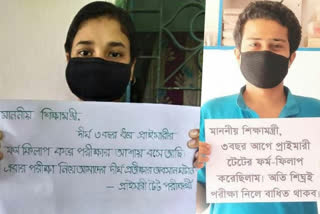 মাননীয় শিক্ষামন্ত্রী,
দীর্ঘ ৩ বছর ধরে প্রাইমারীর
ফর্ম ফিলাপ করে পরীক্ষার আশায় বসে আছি
এবার পরীক্ষা নিয়ে আমাদের দীর্ঘ প্রতীক্ষার অবসান
— প্রাইমারী টেট পরীক্ষার্থী
মাননীয় শিক্ষামন্ত্রী,
৩বছর আগে প্রাইমারী
টেটের ফর্ম-ফিলাপ
করেছিলাম। অতি শিঘ্রই
পরীক্ষা নিলে বাধিত থাকব।